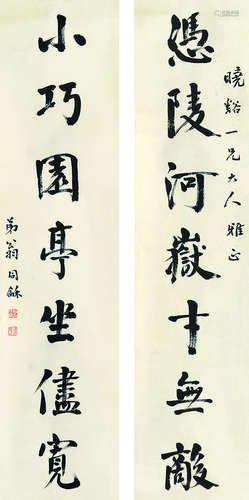 憑陵河嶽才無敵
曉谿一兄大人雅正
小巧園亭坐儘寬
弟翁同龢